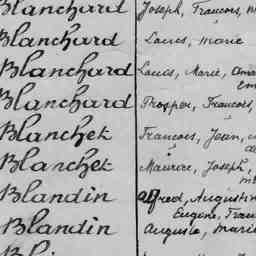 Blanchard Joseph, Francois,
Blanchard Louis, Marie
Blanchard Louis, Marie,
Blanchard Prosper, Francois,
Blanchet Francois, Jean,
Blanchet Maurice, Joseph,
Blandin Alfred, Augustin
Eugène, Fran
Blandin Auguste, Marie